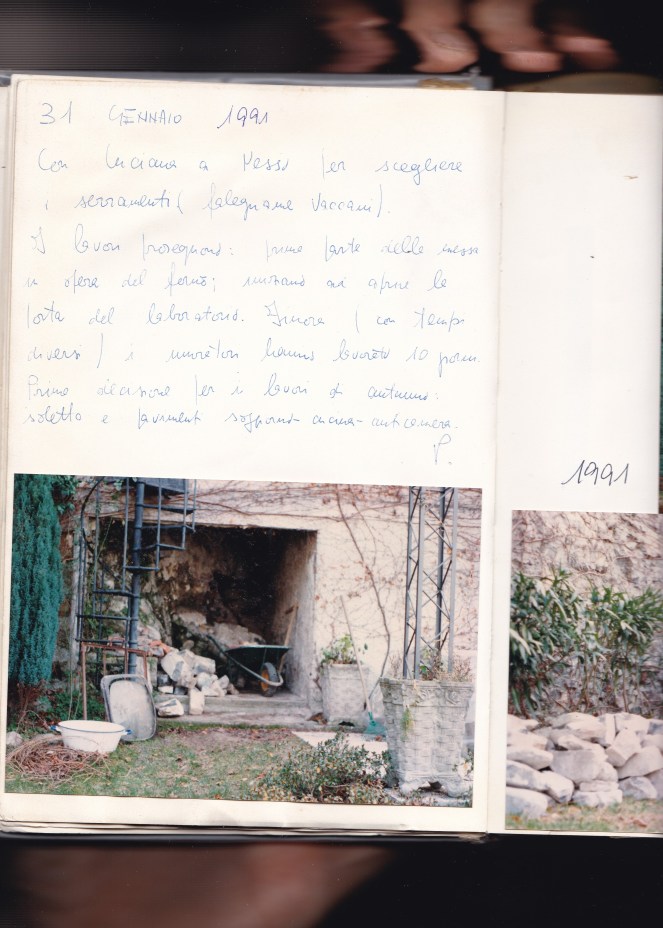 31 GENNAIO 1991
Con Luciana a Nesso per scegliere
i serramenti (falegname Vaccani).
I lavori proseguono: prima parte della messa
in opera del forno; iniziano ad aprire la
porta del laboratorio. Finora (con tempi
diversi) i muratori hanno lavorato 10 giorni.
Prime decisione per i lavori di autunno:
soletta e pavimenti soggiorno-cucina-anticamera.
P.
1991